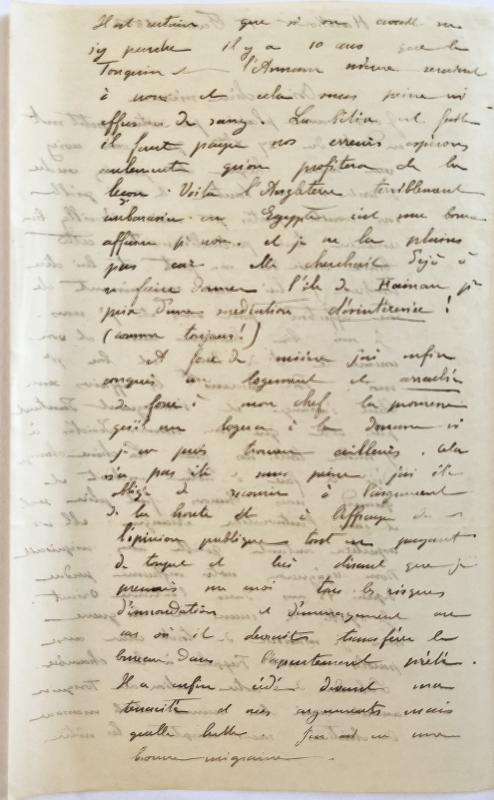 Il est certain que si on avait su
s'y prendre il y a 10 ans que le
Tonquin et l'Annam même seraient
à nous et cela sans peine ni
effusion de sang. La bêtise est faite
il faut payer nos erreurs espérons
seulement qu'on profitera de la
leçon. Voilà l'Angleterre terriblement
embarassée en Egypte c'est une bonne
affaire pr nous. et je ne la plains
pas car elle cherchait déjà à
se faire donner l'île de Hainan pr
prix d'une médiation désintéressée !
(comme toujours !)
A force de misère j'ai enfin
conquis un logement et arraché
de force à mon chef la promesse
qu'il me logera à la douane si
je ne puis trouver ailleurs. cela
n'a pas été sans peine j'ai été
obligé de recourir à l'argument
de la honte et à l'effroi de
l'opinion publique tout en payant
de toupet et lui disant que je
prenais sur moi tous les risques
d'innondation et d'emménagement au
cas où il devrait transférer le
bureau dans l'apartement prêté.
Il a enfin cédé devant ma
tenacité et mes arguments mais
quelle lutte j'en ai eu une
bonne migraine.